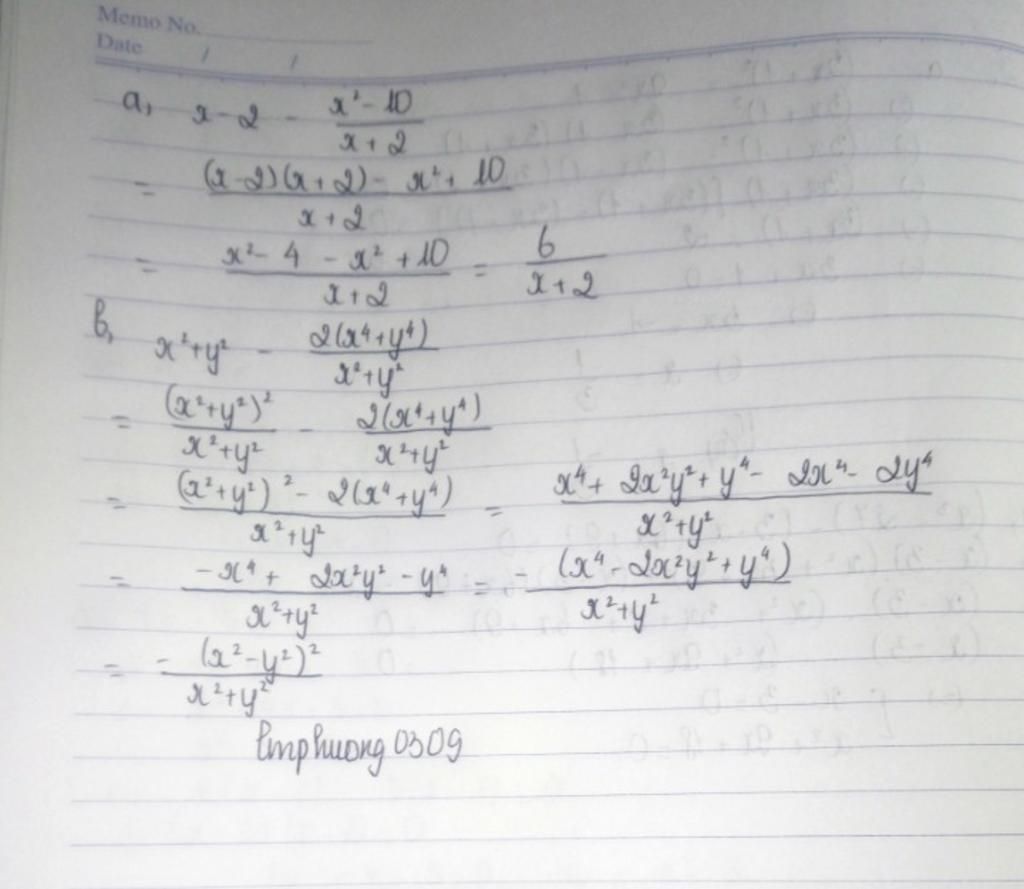 Memo No.
Date / /
a, x - 2 - \frac{x² - 10}{x + 2}
= \frac{(x - 2)(x + 2) - x² + 10}{x + 2}
= \frac{x² - 4 - x² + 10}{x + 2} = \frac{6}{x + 2}
b, x² + y² - \frac{2(x⁴ + y⁴)}{x² + y²}
= \frac{(x² + y²)²}{x² + y²} - \frac{2(x⁴ + y⁴)}{x² + y²}
= \frac{(x² + y²)² - 2(x⁴ + y⁴)}{x² + y²} = \frac{x⁴ + 2x²y² + y⁴ - 2x⁴ - 2y⁴}{x² + y²}
= \frac{-x⁴ + 2x²y² - y⁴}{x² + y²} = - \frac{(x⁴ - 2x²y² + y⁴)}{x² + y²}
= - \frac{(x² - y²)²}{x² + y²}
ltmphuong0309